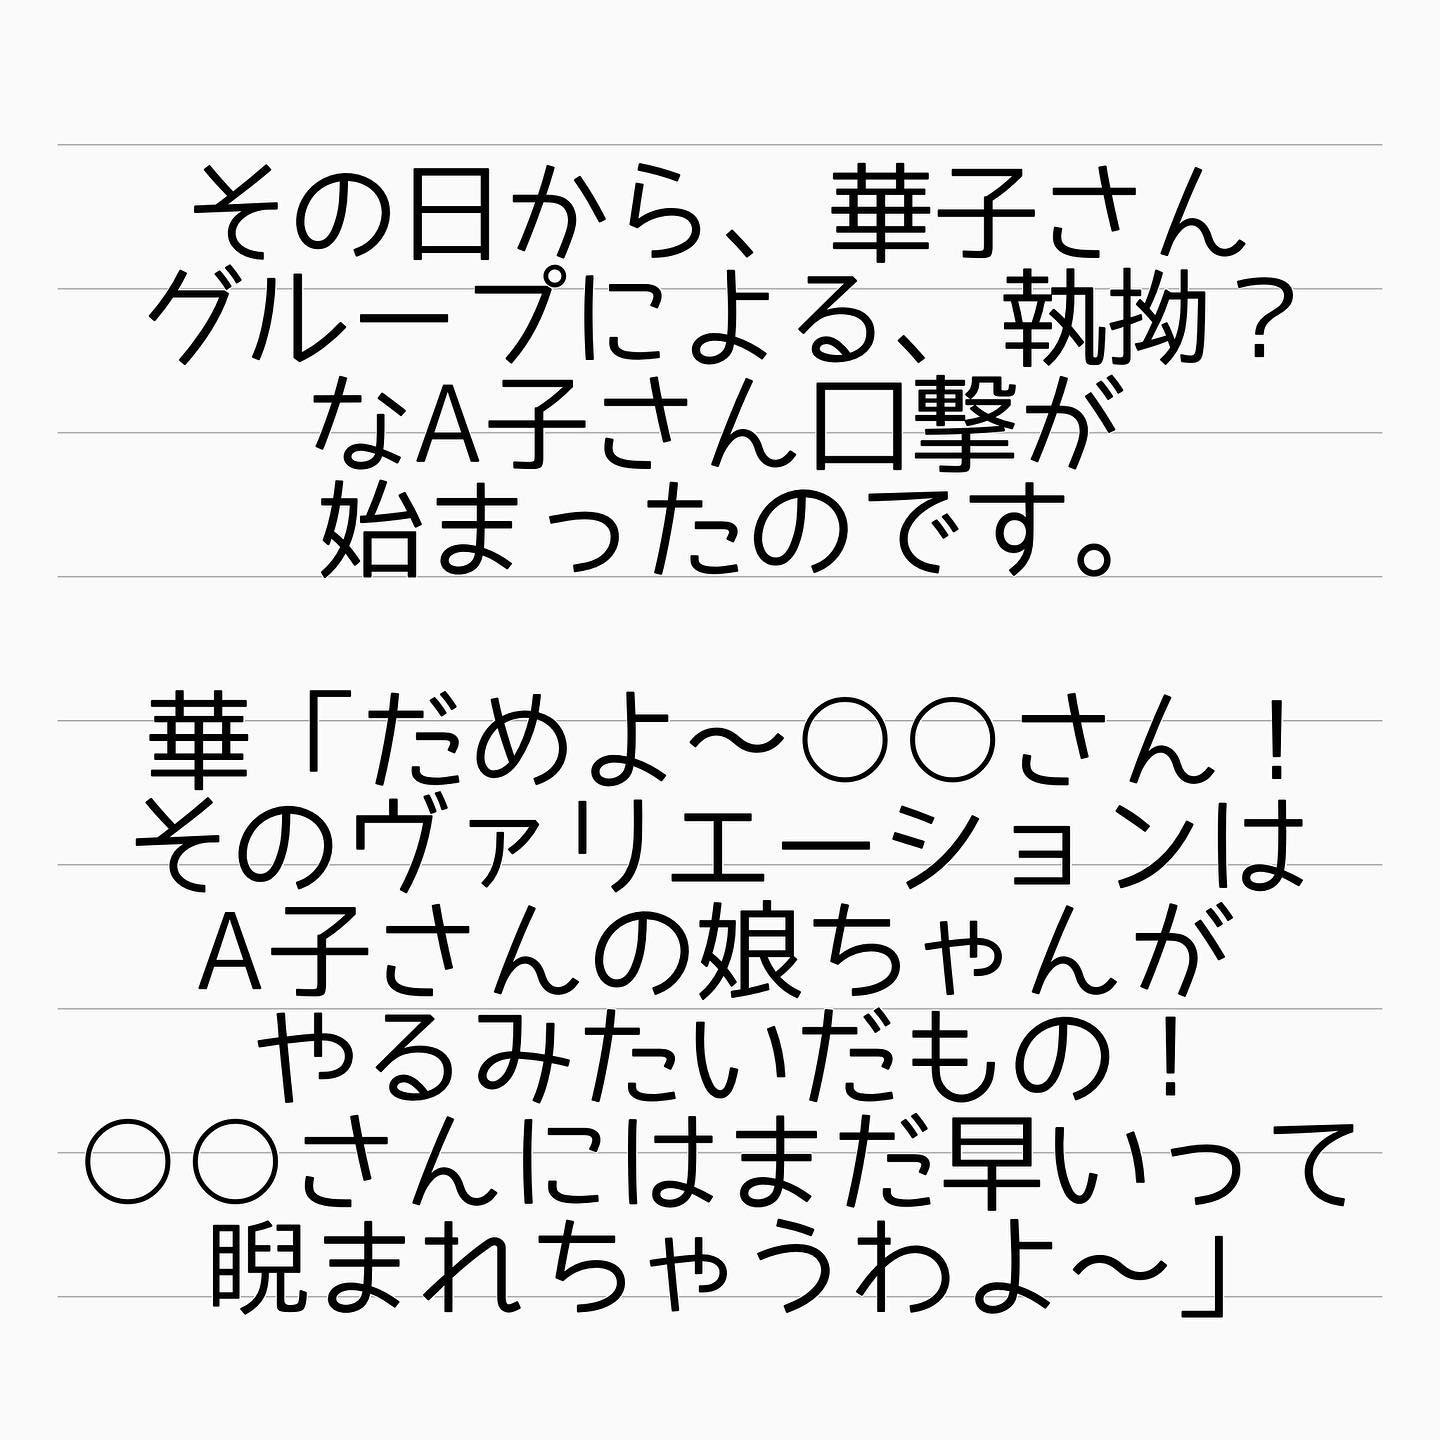 その日から、華子さん
グループによる、執拗？
なA子さん口撃が
始まったのです。
華「だめよ〜○○さん！
そのヴァリエーションは
A子さんの娘ちゃんが
やるみたいだもの！
○○さんにはまだ早いって
睨まれちゃうわよ〜」